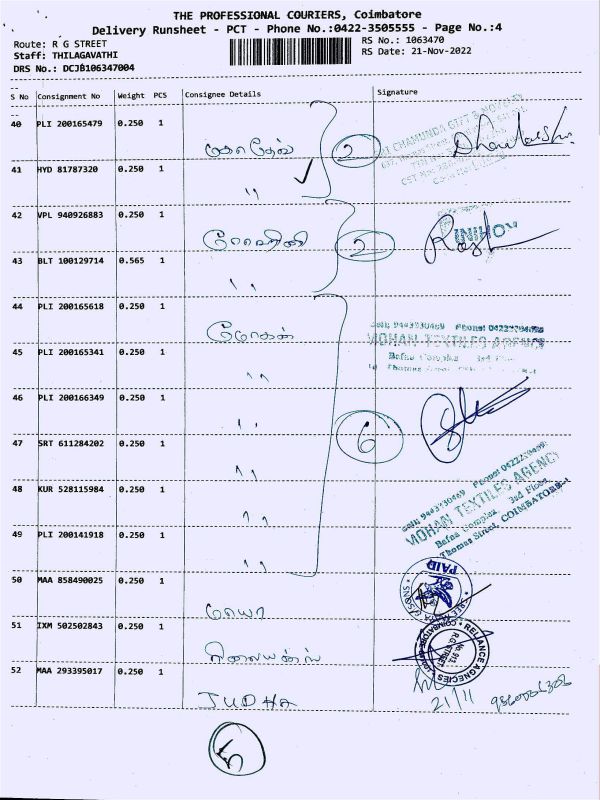 THE PROFESSIONAL COURIERS, Coimbatore
Delivery Runsheet - PCT - Phone No.:0422-3505555 - Page No.:4
Route: R G STREET
Staff: THILAGAVATHI
DRS No.: DCJB106347004
RS No.: 1063470
RS Date: 21-Nov-2022
S No Consignment No Weight PCS Consignee Details Signature
40 PLI 200165479 0.250 1
2
41 HYD 81787320 0.250 1 ''
42 VPL 940926883 0.250 1 ரோஹினி
2 ROHINI
43 BLT 100129714 0.565 1 ''
44 PLI 200165618 0.250 1 மோகன்
MOHAN TEXTILES AGENCY
45 PLI 200165341 0.250 1 ''
46 PLI 200166349 0.250 1 ''
6
47 SRT 611284202 0.250 1 ''
48 KUR 528115984 0.250 1 ''
MOHAN TEXTILES AGENCY
Bafna Complex, 3rd Floor
Thomas Street, COIMBATORE-1
49 PLI 200141918 0.250 1 ''
50 MAA 858490025 0.250 1
PAID
51 IXM 502502843 0.250 1 ரிலையன்ஸ்
RELIANCE AGENCIES
R.G. STREET
52 MAA 293395017 0.250 1 JUDHA
21/11
5